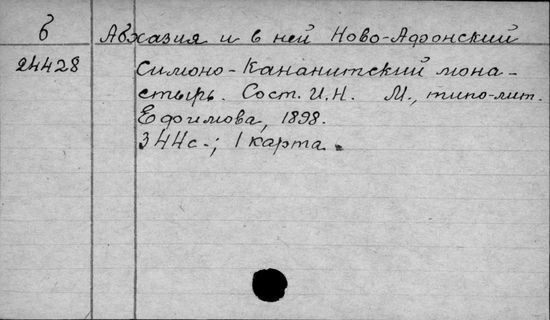 б Абхазия и в ней Ново-Афонский
24428 Симоно-Кананитский мона-
стырь. Сост. И.Н. М., типо-лит.
Ефимова, 1898.
344с.; 1 карта.